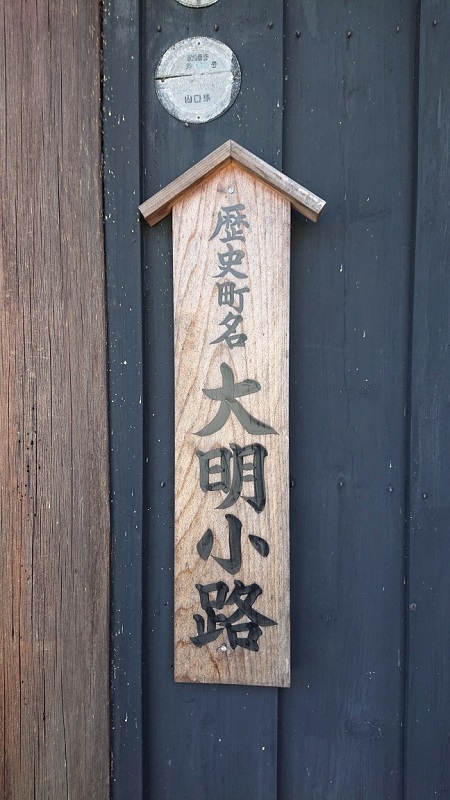 山口県
歴史町名
大明小路